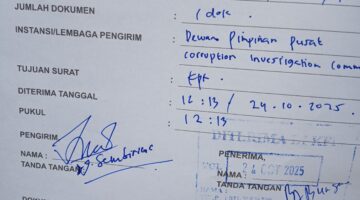 JUMLAH DOKUMEN : 1 dok.
INSTANSI/LEMBAGA PENGIRIM : Dewan Pimpinan Pusat
corruption Investigation comm
TUJUAN SURAT : KPK.
DITERIMA TANGGAL : 12:13 / 24.10.2025.
PUKUL : 12:13
DITERIMA
PENGIRIM, PENERIMA,
NAMA : Sembiring NAMA :
24 OCT 2025
TANDA TANGAN TANDA TANGAN